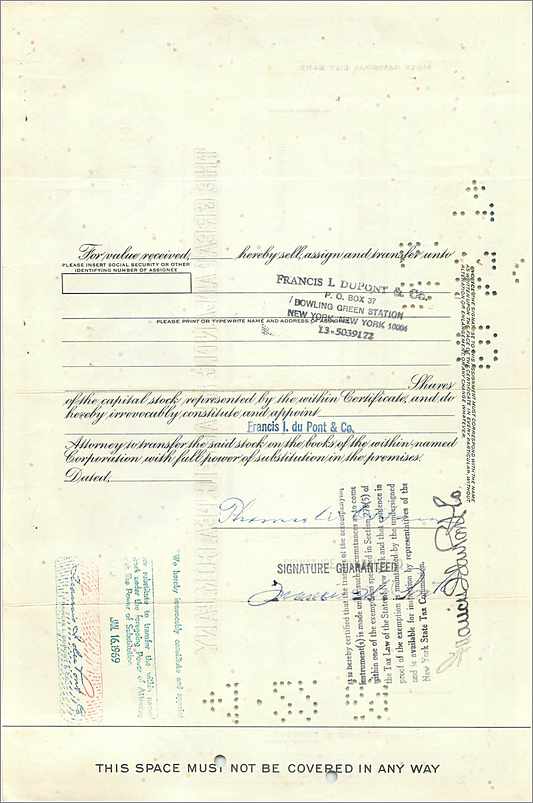 For value received, hereby sell, assign and transfer unto
PLEASE INSERT SOCIAL SECURITY OR OTHER
IDENTIFYING NUMBER OF ASSIGNEE
FRANCIS I. DUPONT & CO.
P. O. BOX 37
BOWLING GREEN STATION
NEW YORK, NEW YORK 10004
13-5039172
PLEASE PRINT OR TYPEWRITE NAME AND ADDRESS OF ASSIGNEE
Shares
of the capital stock represented by the within Certificate, and do
hereby irrevocably constitute and appoint
Francis I. du Pont & Co.
Attorney to transfer the said stock on the books of the within named
Corporation with full power of substitution in the premises.
Dated,
Thomas
SIGNATURE GUARANTEED
It is hereby certified that the transfer of the accompanying
instrument(s) is made under such circumstances as to come
within one of the exemptions specified in Section 270(5) of
the Tax Law of the State of New York and that evidence in
proof of the exemption is maintained by the undersigned
and is available for inspection by representatives of the
New York State Tax Commission.
Francis I. du Pont & Co.
NOTICE: THE SIGNATURE TO THIS ASSIGNMENT MUST CORRESPOND WITH THE NAME
AS WRITTEN UPON THE FACE OF THE CERTIFICATE IN EVERY PARTICULAR, WITHOUT
ALTERATION OR ENLARGEMENT OR ANY CHANGE WHATEVER.
We hereby irrevocably constitute and appoint
substitute to transfer the within named
stock under the foregoing Power of Attorney
the Power of Substitution
JUL 16 1969
Francis I. du Pont & Co
THIS SPACE MUST NOT BE COVERED IN ANY WAY